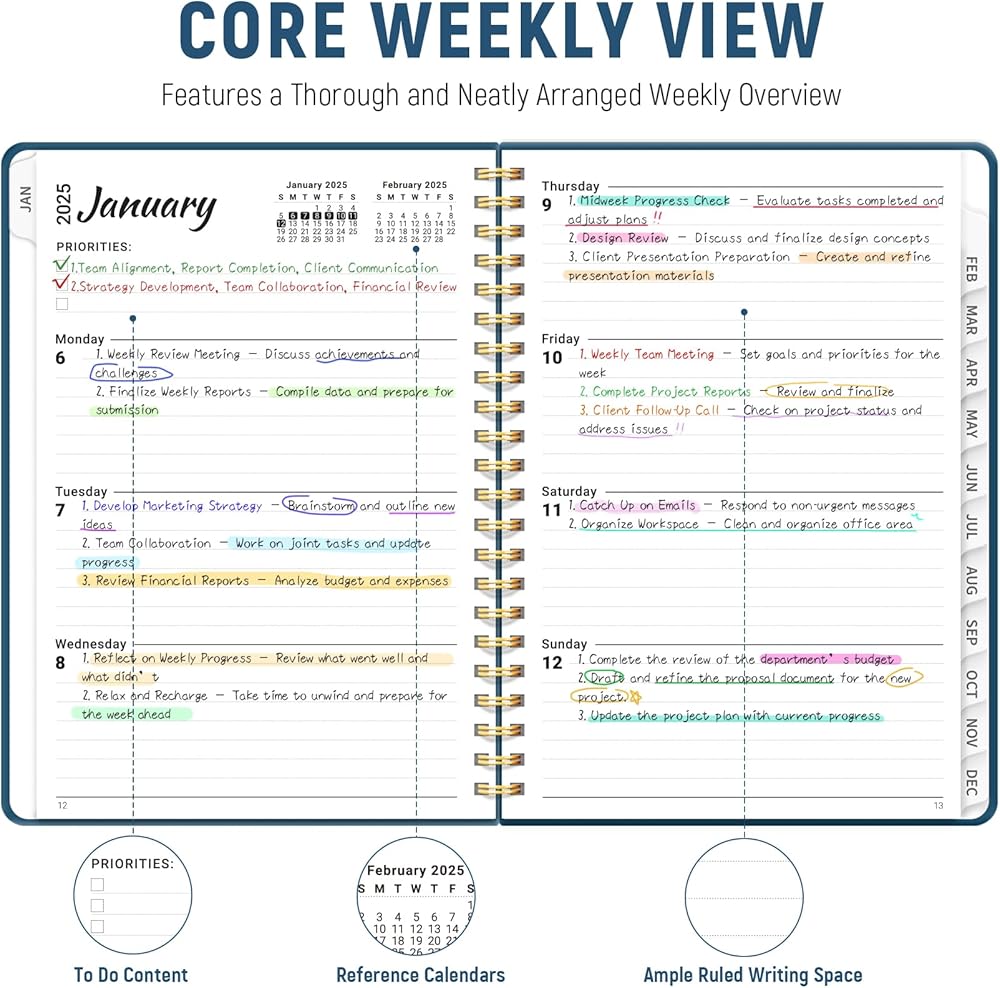 CORE WEEKLY VIEW
Features a Thorough and Neatly Arranged Weekly Overview
JAN
2025
January
January 2025
S M T W T F S
1 2 3 4
5 6 7 8 9 10 11
12 13 14 15 16 17 18
19 20 21 22 23 24 25
26 27 28 29 30 31
February 2025
S M T W T F S
1
2 3 4 5 6 7 8
9 10 11 12 13 14 15
16 17 18 19 20 21 22
23 24 25 26 27 28
PRIORITIES:
1.Team Alignment, Report Completion, Client Communication
2.Strategy Development, Team Collaboration, Financial Review
Monday
6
1. Weekly Review Meeting – Discuss achievements and
challenges
2. Finalize Weekly Reports – Compile data and prepare for
submission
Tuesday
7
1. Develop Marketing Strategy – Brainstorm and outline new
ideas
2. Team Collaboration – Work on joint tasks and update
progress
3. Review Financial Reports – Analyze budget and expenses
Wednesday
8
1. Reflect on Weekly Progress – Review what went well and
what didn't
2. Relax and Recharge – Take time to unwind and prepare for
the week ahead
12
Thursday
9
1. Midweek Progress Check – Evaluate tasks completed and
adjust plans !!
2. Design Review – Discuss and finalize design concepts
3. Client Presentation Preparation – Create and refine
presentation materials
Friday
10
1. Weekly Team Meeting – Set goals and priorities for the
week
2. Complete Project Reports – Review and finalize
3. Client Follow-Up Call – Check on project status and
address issues !!
Saturday
11
1. Catch Up on Emails – Respond to non-urgent messages
2. Organize Workspace – Clean and organize office area
Sunday
12
1. Complete the review of the department's budget
2. Draft and refine the proposal document for the new
project.
3. Update the project plan with current progress
13
FEB
MAR
APR
MAY
JUN
JUL
AUG
SEP
OCT
NOV
DEC
PRIORITIES:
February 2025
S M T W T F S
1
2 3 4 5 6 7 8
10 11 12 13 14
17 18 19 20 21
25 26
To Do Content
Reference Calendars
Ample Ruled Writing Space